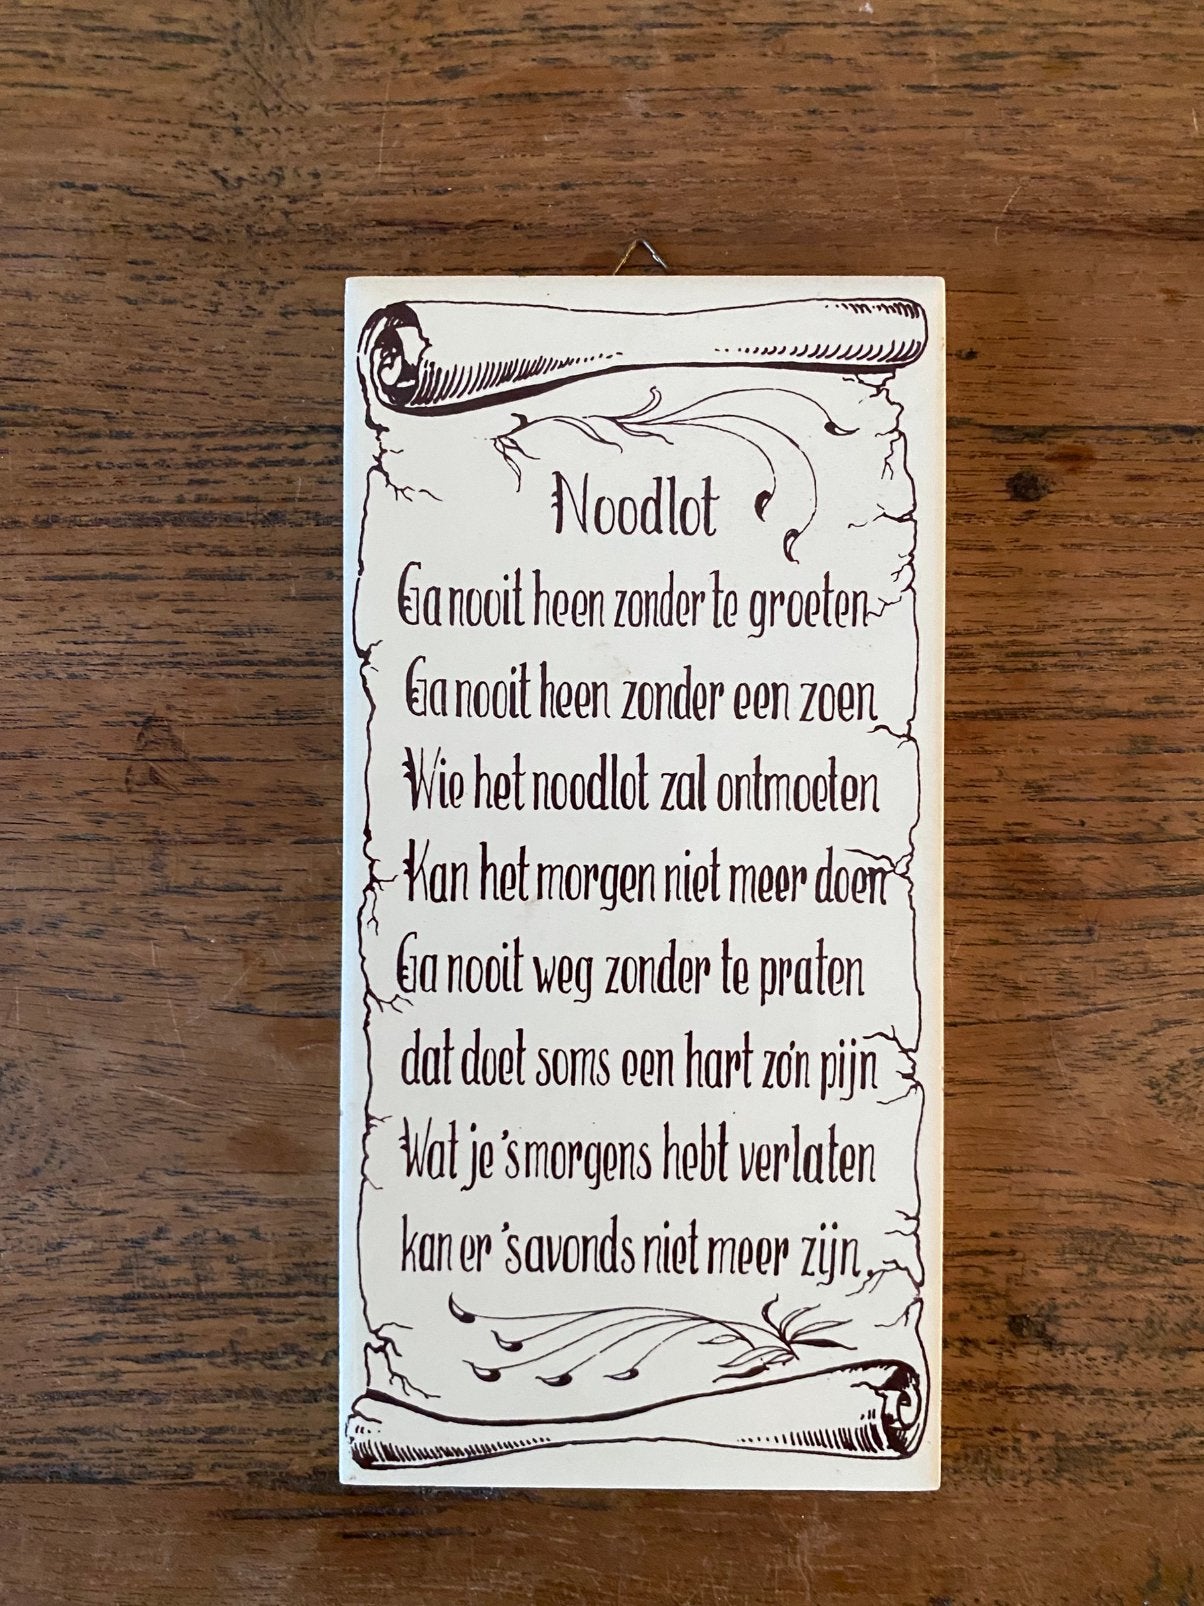 Noodlot
Ga nooit heen zonder te groeten
Ga nooit heen zonder een zoen
Wie het noodlot zal ontmoeten
Kan het morgen niet meer doen
Ga nooit weg zonder te praten
dat doet soms een hart zo'n pijn
Wat je 's morgens hebt verlaten
kan er 's avonds niet meer zijn.